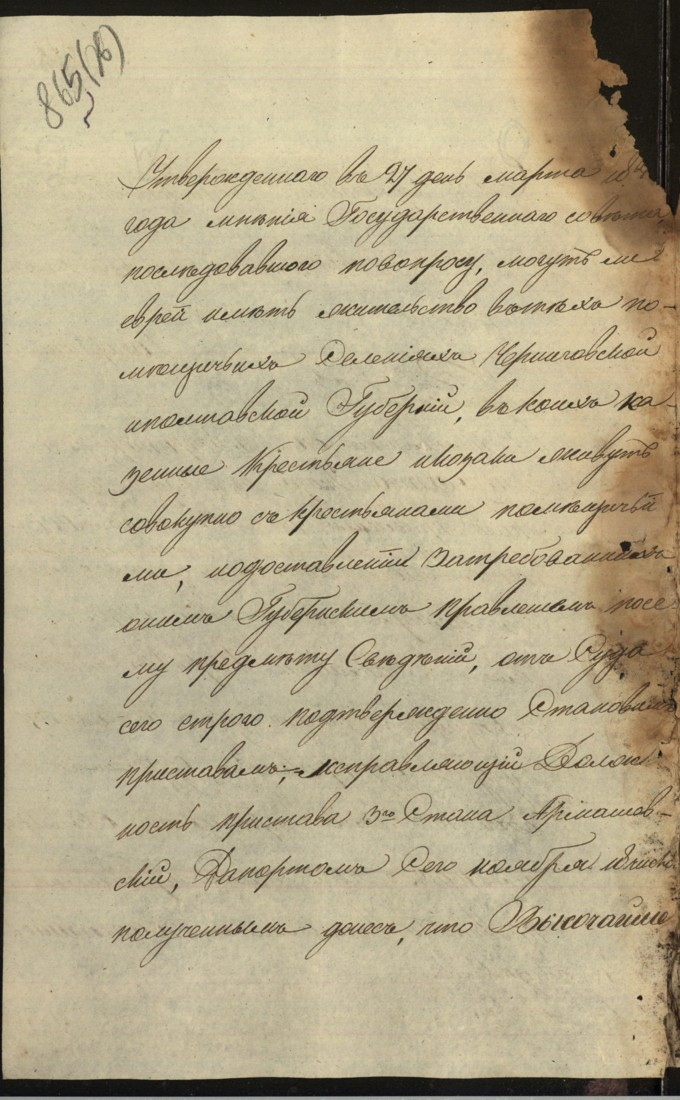 865(26)
Утвержденнаго въ 27 день марта
года мнѣнія Государственнаго совѣта
послѣдовавшаго повопросу, могутъ ли
еврей имѣть жительство втѣхъ по-
мѣщичьихъ Селеніяхъ Черниговской
иполтавской Губерній, вкоихъ ка-
зенные Крестьяне иказаки живутъ
совокупно съ крестьянами помѣщичьи
ми, одоставленіи Затребованныхъ
онимъ Губернскимъ Правленіемъ посе
му предмѣту Свѣдѣній, отъ Суда
сего строго подтверждено Становымъ
приставамъ; исправляющій Долж
ность пристава 3го Стана
скій, Рапортомъ Сего ноября
полученнымъ донесъ, что Высочайше